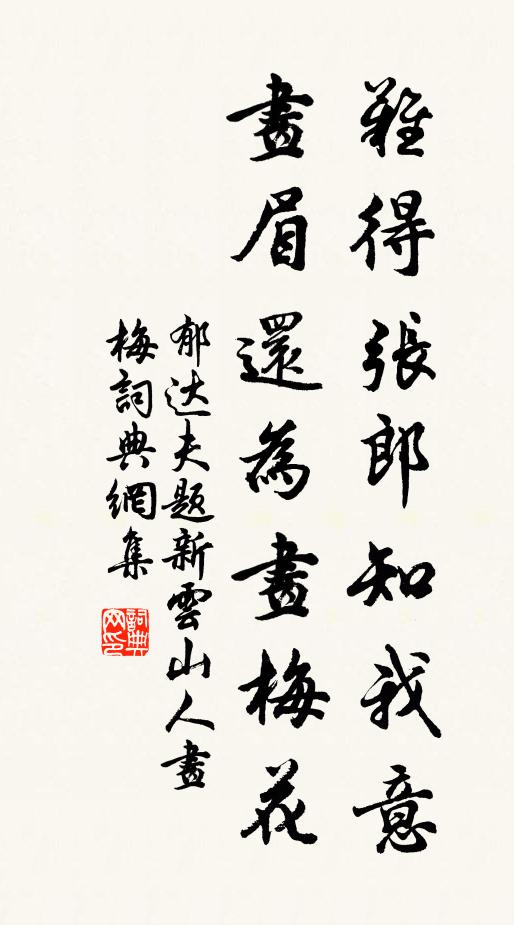 難得張郎知我意
畫眉還為畫梅花
郁达夫题新雲山人畫
梅詞典網集
詞典
网印